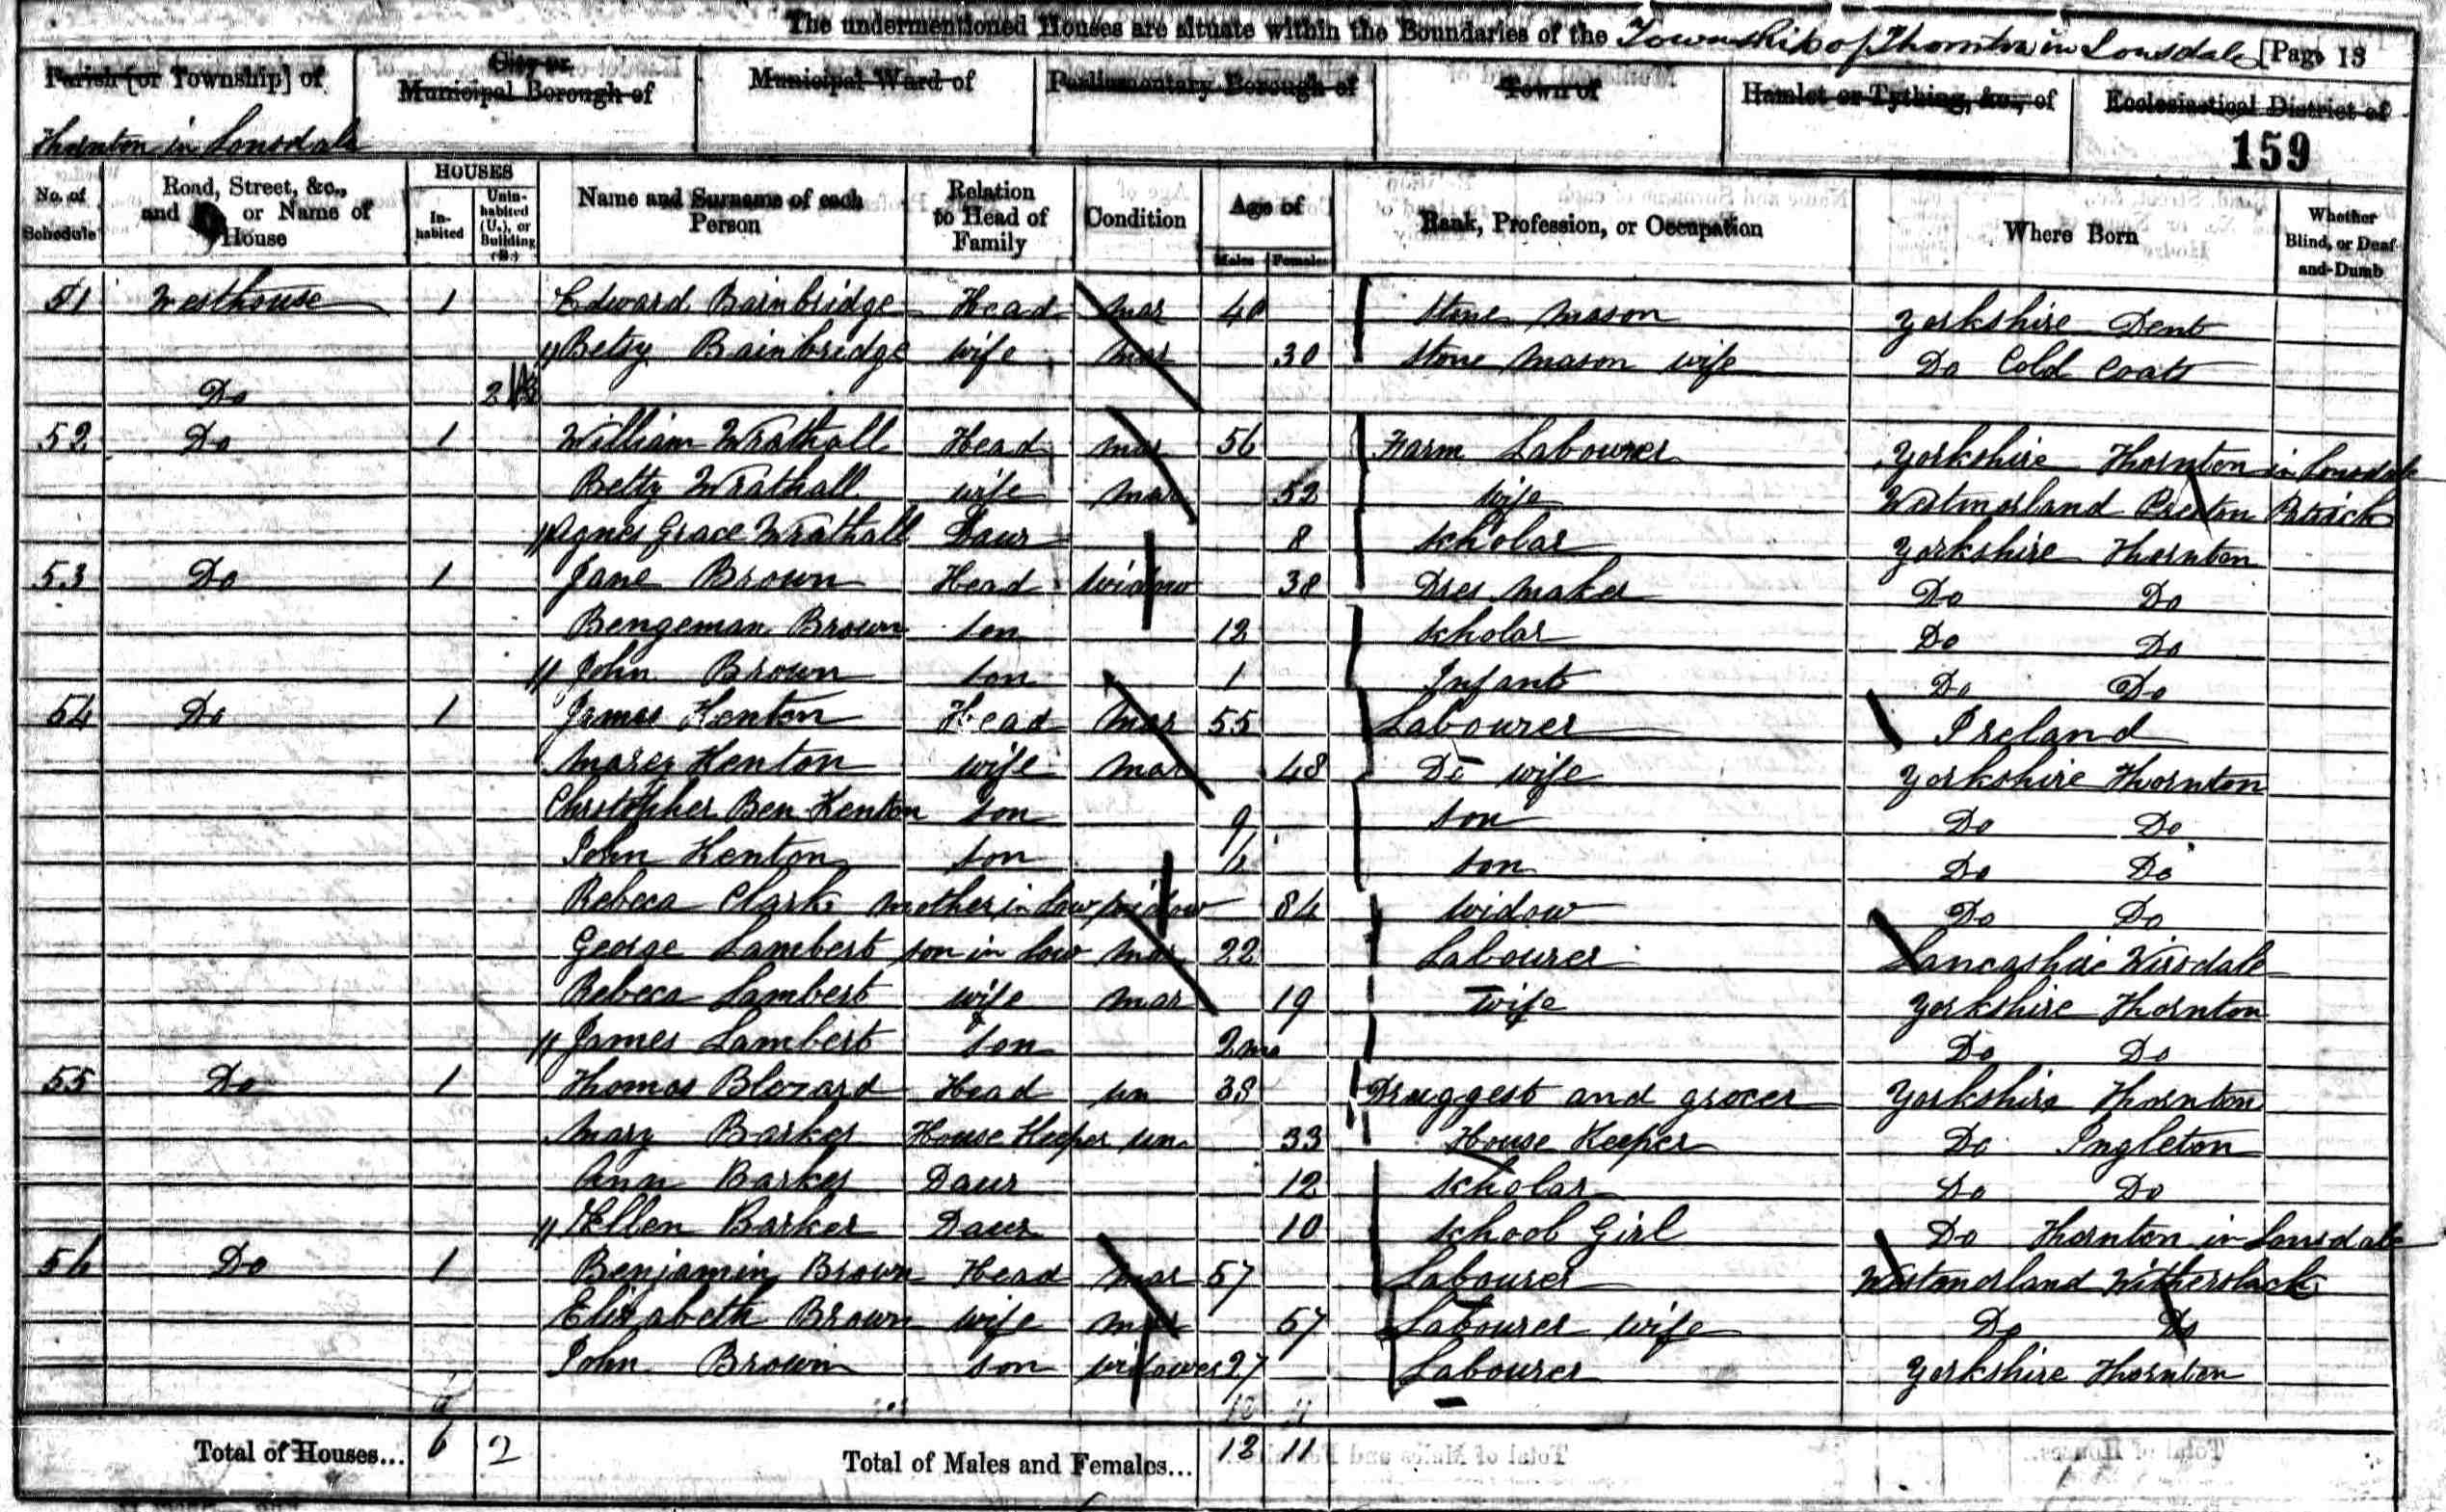 The undermentioned Houses are situate within the Boundaries of the Township of Thornton in Lonsdale [Page 13
Parish [or Township] of
City or Municipal Borough of
Municipal Ward of
Parliamentary Borough of
Town of
Hamlet or Tything, &c., of
Ecclesiastical District of
Thornton in Lonsdale
159
No. of Schedule
Road, Street, &c., and or Name of House
HOUSES
In-habited
Unin-habited (U.), or Building (B.)
Name and Surname of each Person
Relation to Head of Family
Condition
Age of
Males
Females
Rank, Profession, or Occupation
Where Born
Whether Blind, or Deaf-and-Dumb
51 Westhouse 1 Edward Bainbridge Head mar 40 Stone Mason Yorkshire Dent
Betsy Bainbridge wife mar 30 Stone Mason wife Do Cold Coats
Do 2
52 Do 1 William Wrathall Head mar 56 Farm Labourer Yorkshire Thornton in Lonsdale
Betty Wrathall wife mar 52 wife Westmorland Preston Patrick
Agnes Grace Wrathall Daur 8 scholar Yorkshire Thornton
53 Do 1 Jane Brown Head widow 38 Dres Maker Do Do
Bengeman Brown son 12 scholar Do Do
John Brown son 1 Infant Do Do
54 Do 1 James Kenton Head mar 55 Labourer Ireland
Marey Kenton wife mar 48 Do wife Yorkshire Thornton
Christopher Ben Kenton son 9 son Do Do
John Kenton son 6 son Do Do
Rebeca Clark mother in law widow 84 widow Do Do
George Lambert son in law mar 22 Labourer Lancashire Wirsdale
Rebeca Lambert wife mar 19 wife Yorkshire Thornton
James Lambert son 2 mo Do Do
55 Do 1 Thomas Blezard Head un 38 Druggest and grocer Yorkshire Thornton
Mary Barker House Keeper un 33 House Keeper Do Ingleton
Ann Barker Daur 12 scholar Do Do
Ellen Barker Daur 10 school Girl Do Thornton in Lonsdale
56 Do 1 Benjamin Brown Head mar 57 Labourer Westmorland Witherslack
Elizabeth Brown wife mar 57 Labourer wife Do Do
John Brown son widower 27 Labourer Yorkshire Thornton
Total of Houses... 6 2 Total of Males and Females... 12 11